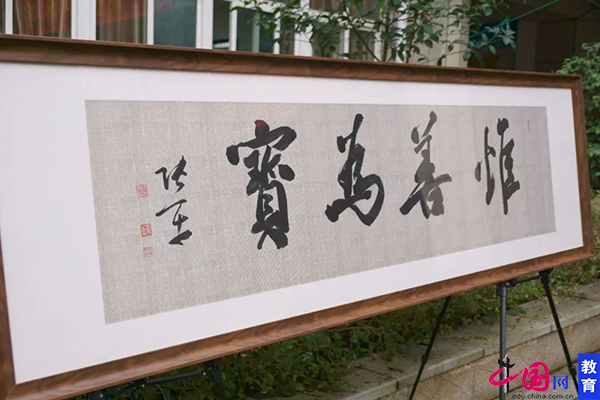 惟善為寶
张平
中国网
edu.china.com.cn
教育